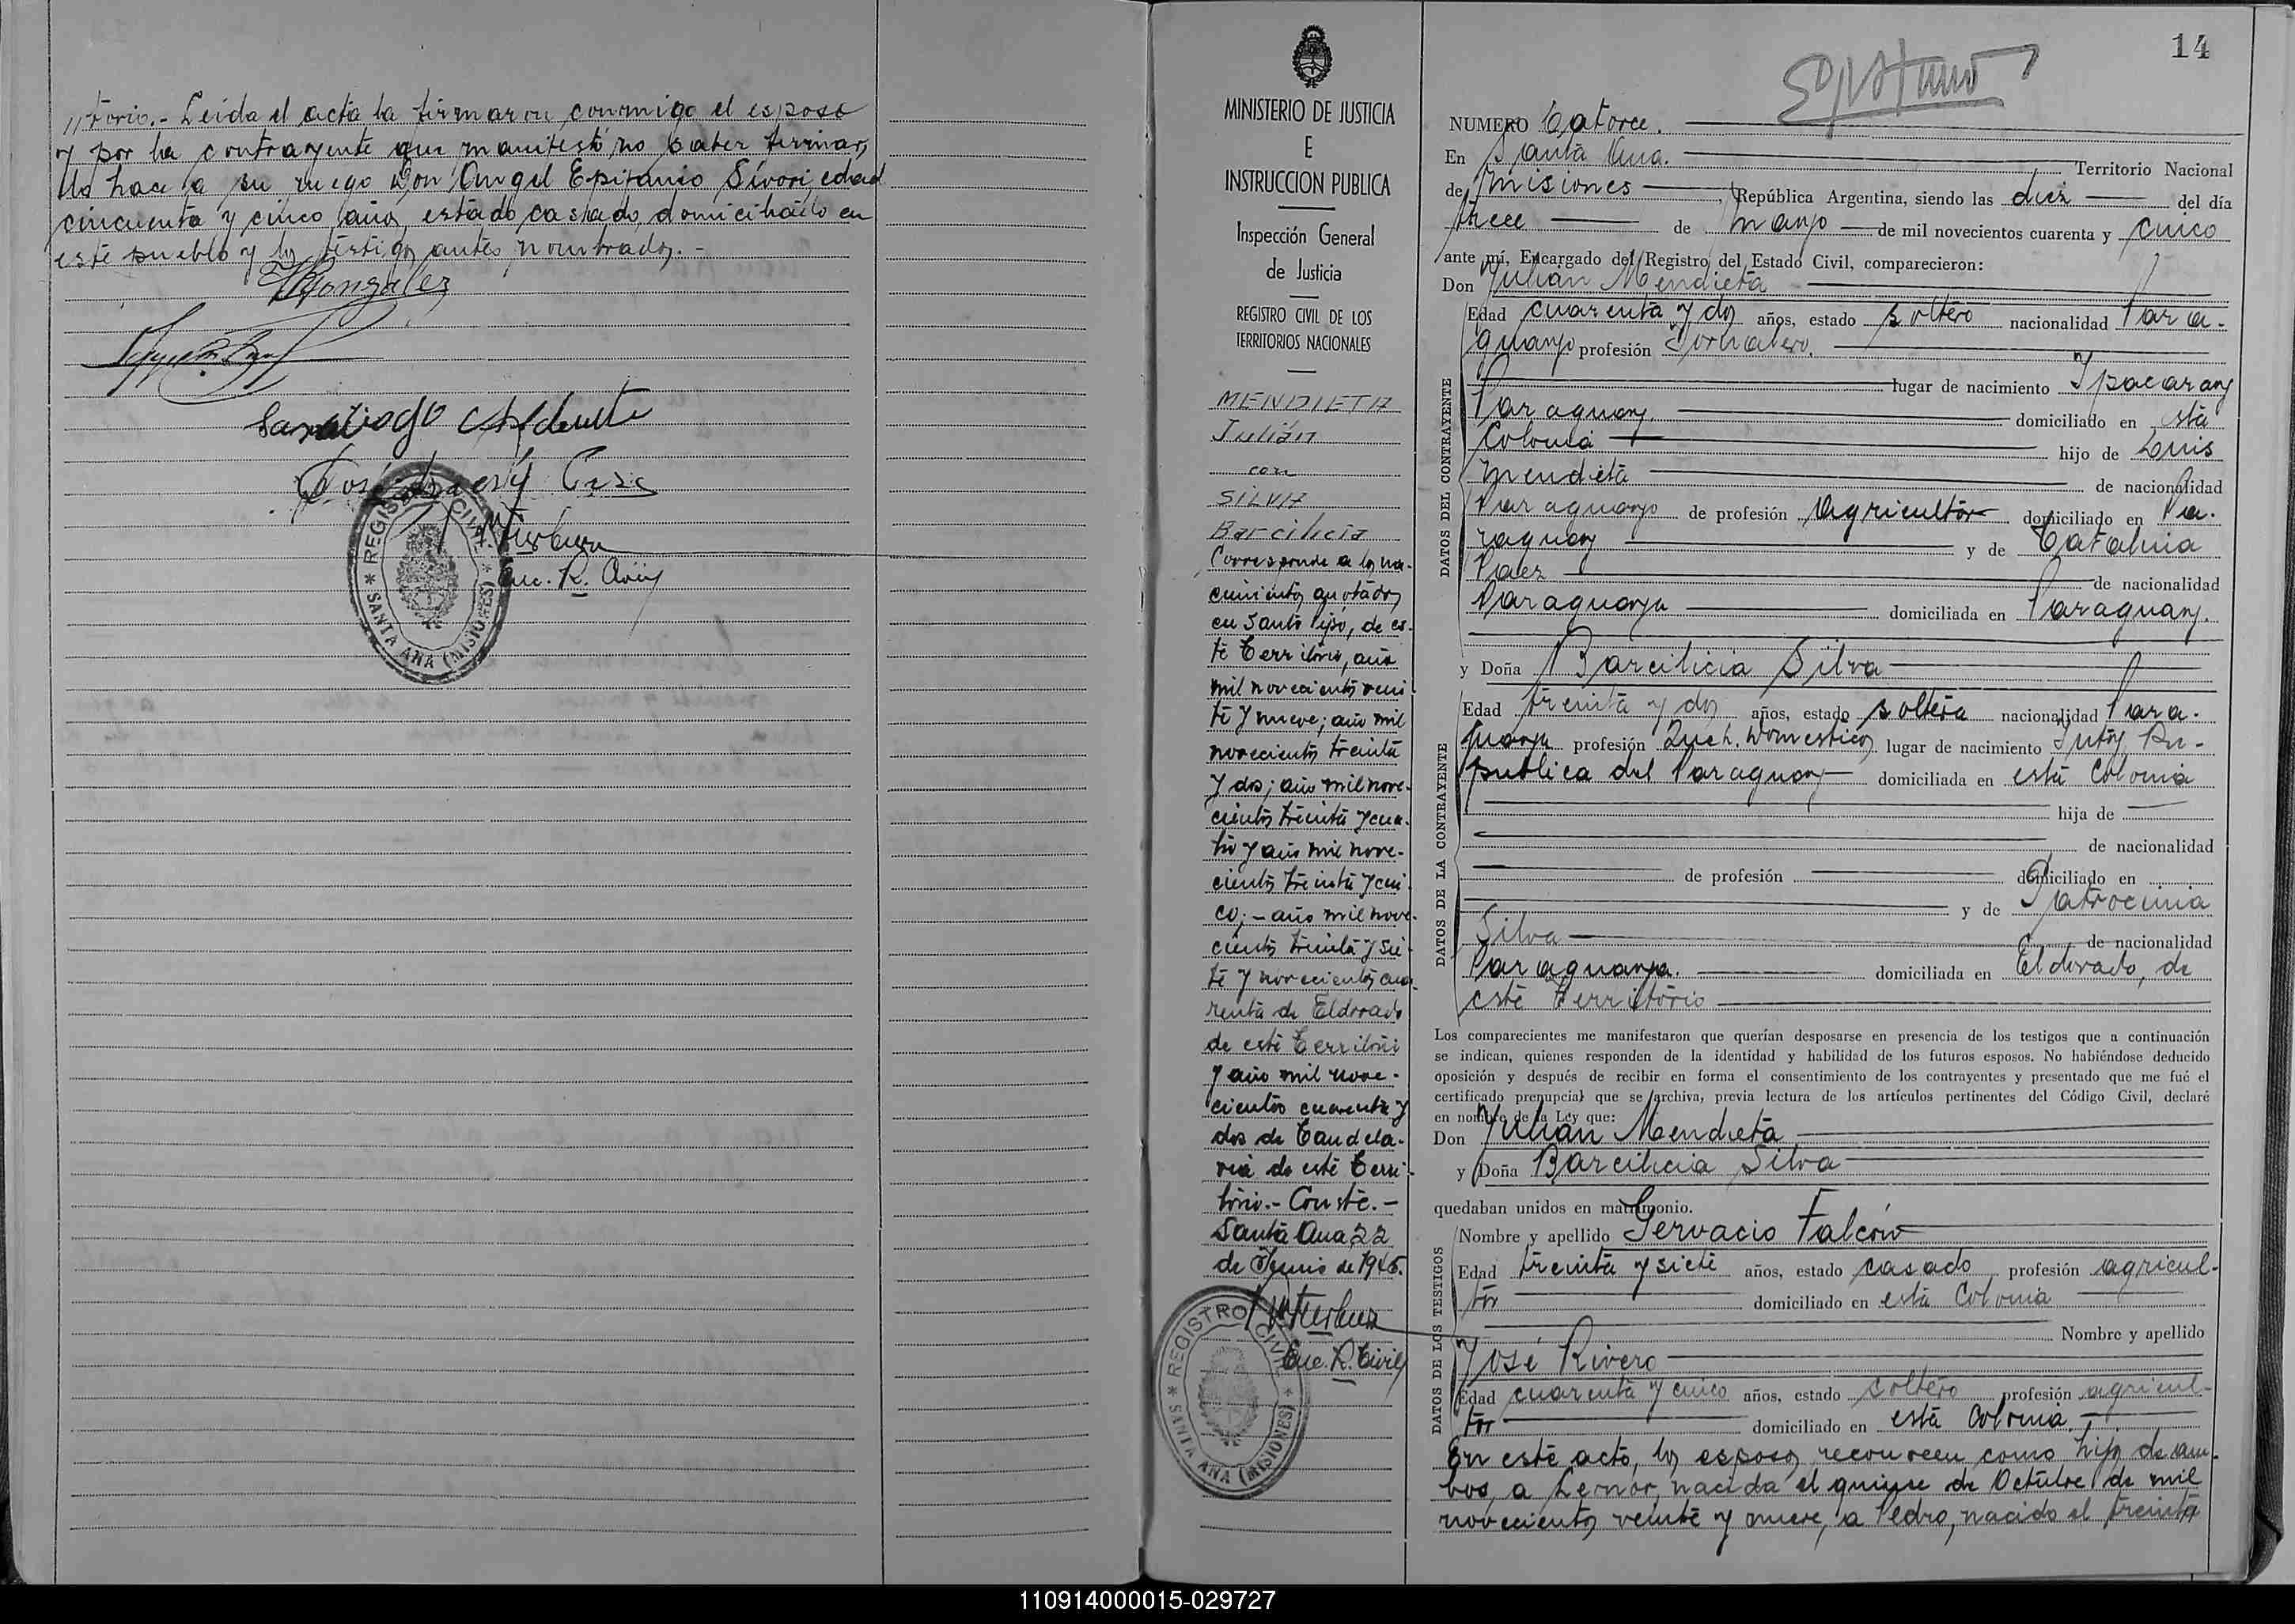 //torio.- Leida el acta la firmaron conmigo el esposo
y por la contrayente que manifestó no saber firmar,
lo hace a su ruego Don Angel Epifanio Sívori edad
cincuenta y cinco años, estado casado, domiciliado en
este pueblo y los testigos antes nombrados.-
González
Santiago
José Casc
Enc. R. Civil
REGISTRO CIVIL
* SANTA ANA (MISIONES) *
MINISTERIO DE JUSTICIA
E
INSTRUCCION PUBLICA
Inspección General
de Justicia
REGISTRO CIVIL DE LOS
TERRITORIOS NACIONALES
MENDIETA
Julián
con
SILVA
Barcilicia
Corresponde a los na-
cimientos anotados
en Santo Pipó, de es-
te Territorio, año
mil novecientos vein
te y nueve; año mil
novecientos treinta
y dos; año mil nove-
cientos treinta y cua-
tro y año mil nove-
cientos treinta y cin
co; - año mil nove-
cientos treinta y sie-
te y novecientos cua-
renta de Eldorado
de este Territorio
y año mil nove-
cientos cuarenta y
dos de Candela-
ria de este Terri-
torio.- Conste.-
Santa Ana 22
de Junio de 1945.
Enc. R. Civil
REGISTRO CIVIL
* SANTA ANA (MISIONES) *
14
NUMERO Catorce.
En Santa Ana. Territorio Nacional
de Misiones, República Argentina, siendo las diez del día
trece de mayo de mil novecientos cuarenta y cinco
ante mí, Encargado del Registro del Estado Civil, comparecieron:
Don Julián Mendieta
DATOS DEL CONTRAYENTE
Edad cuarenta y dos años, estado soltero nacionalidad Para-
guayo profesión Jornalero.
lugar de nacimiento Ypacaray
Paraguay. domiciliado en esta
Colonia hijo de Luis
Mendieta de nacionalidad
Paraguayo de profesión Agricultor domiciliado en Pa-
raguay y de Catalina
Paez de nacionalidad
Paraguaya domiciliada en Paraguay.
y Doña Barcilicia Silva
DATOS DE LA CONTRAYENTE
Edad treinta y dos años, estado soltera nacionalidad Para-
guaya profesión Queh. Domesticos lugar de nacimiento Yuty, Re-
publica del Paraguay domiciliada en esta Colonia
hija de
de nacionalidad
de profesión domiciliado en
y de Patrocinia
Silva de nacionalidad
Paraguaya. domiciliada en Eldorado, de
este Territorio
Los comparecientes me manifestaron que querían desposarse en presencia de los testigos que a continuación
se indican, quienes responden de la identidad y habilidad de los futuros esposos. No habiéndose deducido
oposición y después de recibir en forma el consentimiento de los contrayentes y presentado que me fué el
certificado prenupcial que se archiva, previa lectura de los artículos pertinentes del Código Civil, declaré
en nombre de la Ley que:
Don Julián Mendieta
y Doña Barcilicia Silva
quedaban unidos en matrimonio.
DATOS DE LOS TESTIGOS
Nombre y apellido Gervacio Falcón
Edad treinta y siete años, estado casado profesión agricul-
tor domiciliado en esta Colonia
Nombre y apellido
José Rivero
Edad cuarenta y cinco años, estado soltero profesión agricul-
tor domiciliado en esta Colonia.
En este acto, los esposos reconocen como hijos de am-
bos, a Leonor, nacida el quince de Octubre de mil
novecientos veinte y nueve, a Pedro, nacido el treinta
110914000015-029727